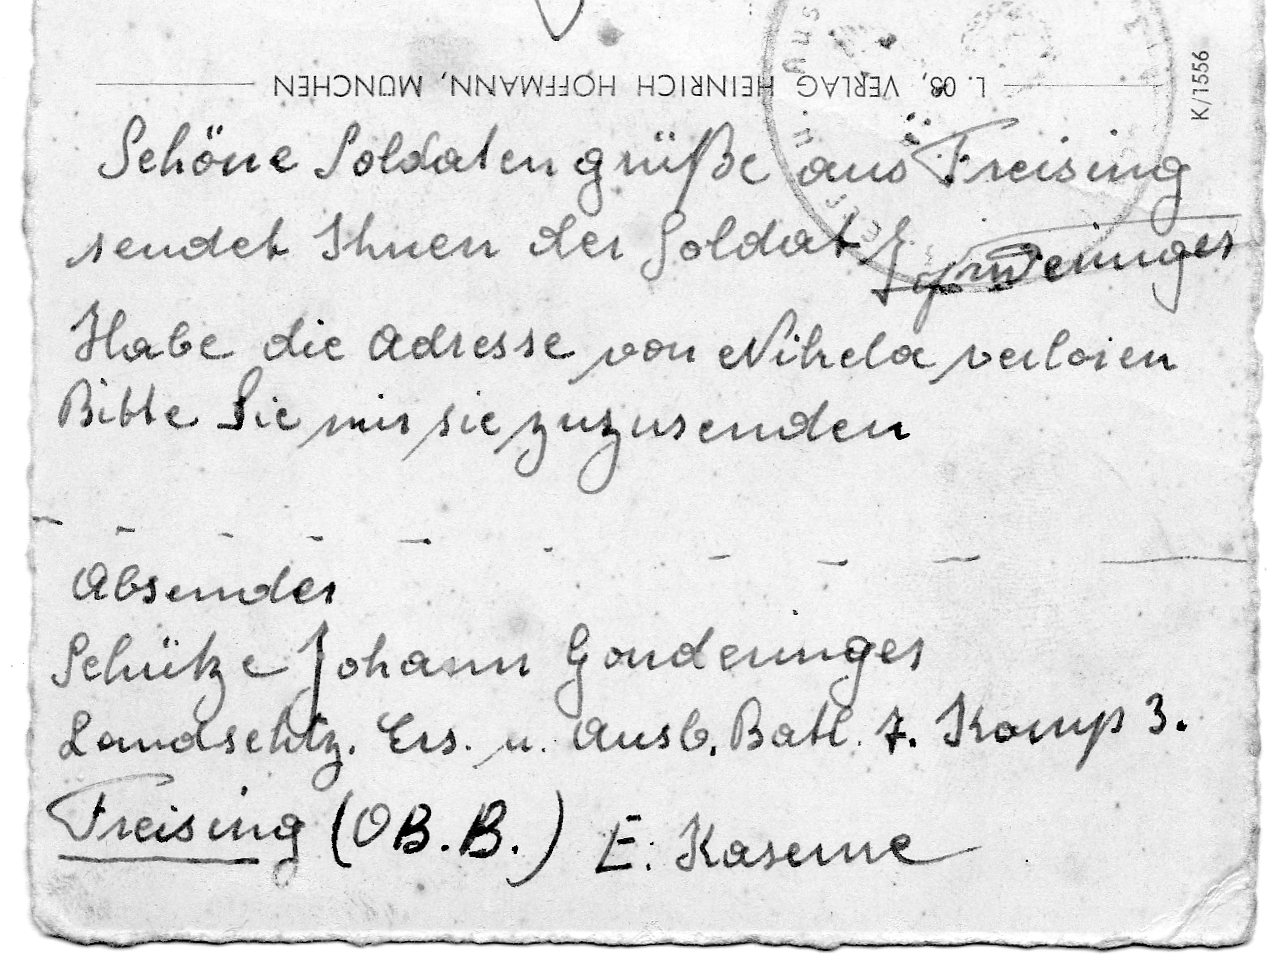 L. 08, VERLAG HEINRICH HOFFMANN, MÜNCHEN
K/1556
Schöne Soldatengrüße aus Freising
sendet Ihnen der Soldat
Habe die Adresse von verloren
Bitte Sie mir sie zuzusenden
Absender
Schütze Johann Gonderinger
Landschtz. Ers. u. Ausb. Batl. 7. Komp 3.
Freising (OB.B.) E. Kaserne